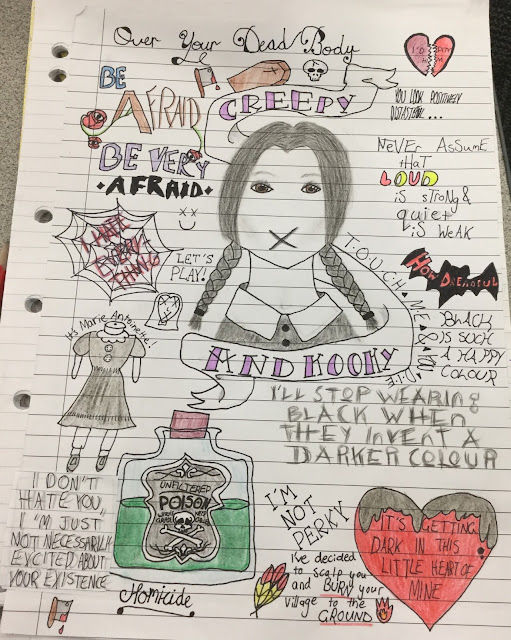 Over Your Dead Body
BE
AFRAID
BE VERY
AFRAID
CREEPY
YOU LOOK POSITIVELY
NeVEr AsSuME
tHaT
LOUD
iS StRoNG &
quiet
iS WeAK
I HATE
EVERY
THING
LET'S
PLAY!
TOUCH ME & YOU DIE
HOW DREADFUL
BlACK
IS SUCH
A HAPPY
COLOUR
It's Marie Antoinette!
AND KOOKY
I'LL STOP WEARING
BLACK WHEN
THEY INVENT A
DARKER COLOUR
UNFILTERED
POISON
I DON'T
HATE YOU,
I'M JUST
NOT NECESSARILY
EXCITED ABOUT
YOUR EXISTENCE
Homicide
I'M
NOT
PERKY
I've decided
to scalp you
and BURN your
village to the
GROUND
IT'S GETTING
DARK IN THIS
LITTLE HEART OF
MINE